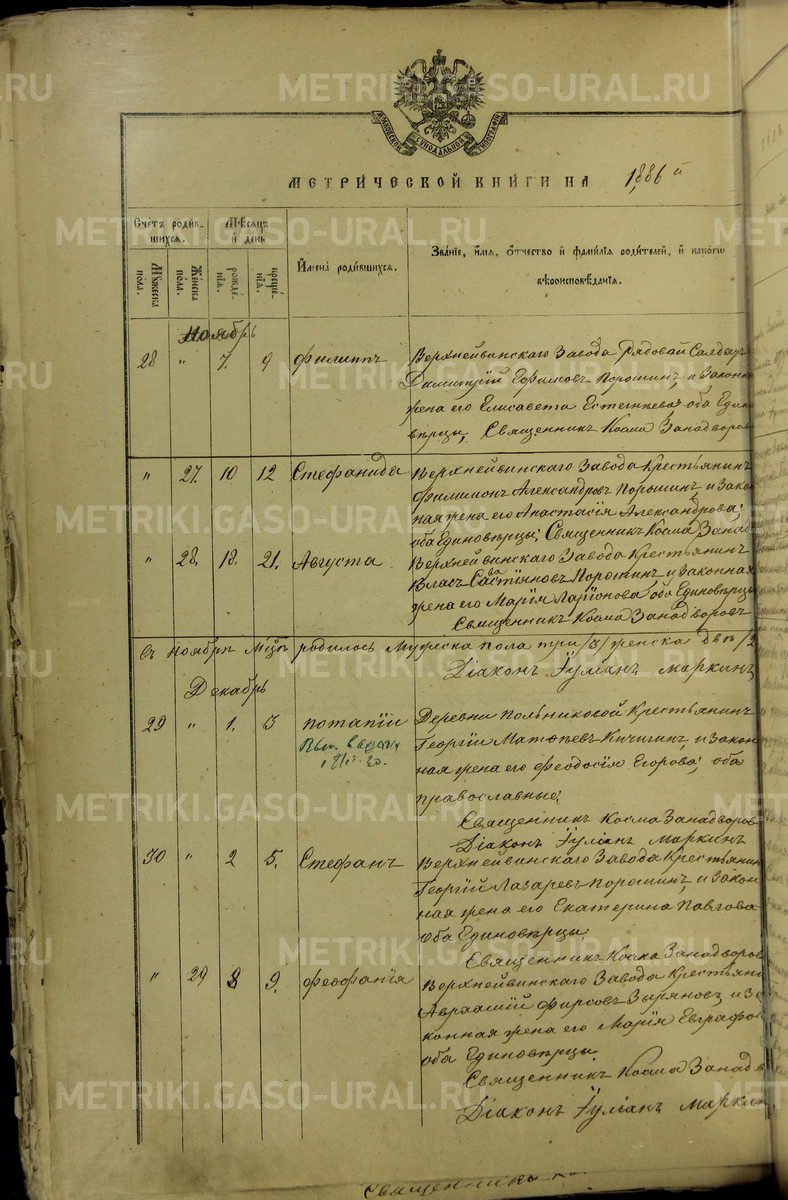 METRIKI.GASO-URAL.RU
МОСКОВСКОЙ СѴНОДАЛЬНОЙ ТИПОГРАФІИ
МЕТРИЧЕСКОЙ КНИГИ НА 1886 й
Счетъ родив-
шихся.
Мѣсяцъ
и день
Имена родившихся.
Званіе, имя, отчество и фамилія родителей, и какогѡ
вѣроисповѣданія.
Мꙋжеска
пола.
Женска
пола.
рожде-
нія.
креще-
нія.
Ноябрь
28 " 7. 9 Филиппъ
Верхнейвинскаго Завода Рядовай Салдат
Димитрій Ефимовъ Порошинъ, и Законн
жена его Елисавета Естегнѣева оба Един
вѣрцы, Священникъ Косма Занадворов
" 27. 10 12 Стефанида
Верхнейвинскаго Завода Крестьянинъ
Филимонъ Александровъ Порошинъ, и Зако
ная жена его Анастасія Александрова;
оба Единовѣрцы; Священникъ Косма Занад
" 28. 18. 21. Августа
Верхнейвинскаго Завода Крестьянинъ
Власъ Савастіяновъ Порошинъ и Законная
жена его Марія Ларіонова оба Единовѣрцы
Священникъ Косма Занадворовъ
Въ Ноябрѣ м҃цѣ родилось Мужеска пола три /3/ женска двѣ /2
Діаконъ Іуліанъ Маркинъ
Декабрь
29 " 1. 3 Потапіи
Деревни Польниковой Крестьянинъ
Георгіи Матѳѣевъ Кичигинъ, и Закон
ная жена его Феодосія Егорова; оба
православные;
Священникъ Косма Занадворов
Діаконъ Іуліанъ Маркинъ
30 " 2 5. Стефанъ
Верхнейвинскаго Завода Крестьянин
Георгій Лазаревъ Порошинъ, и Закон
ная жена его Екатерина Павлова
оба Единовѣрцы
Священникъ Косма Занадворов
" 29 8 9. Феофанія
Верхнейвинскаго Завода Крестьяни
Авраамій Фирсовъ Зыряновъ, и За
конная жена его Марія Евграфов
оба Единовѣрцы.
Священникъ Косма Занадв
Діаконъ Іуліанъ Маркин
Священникъ